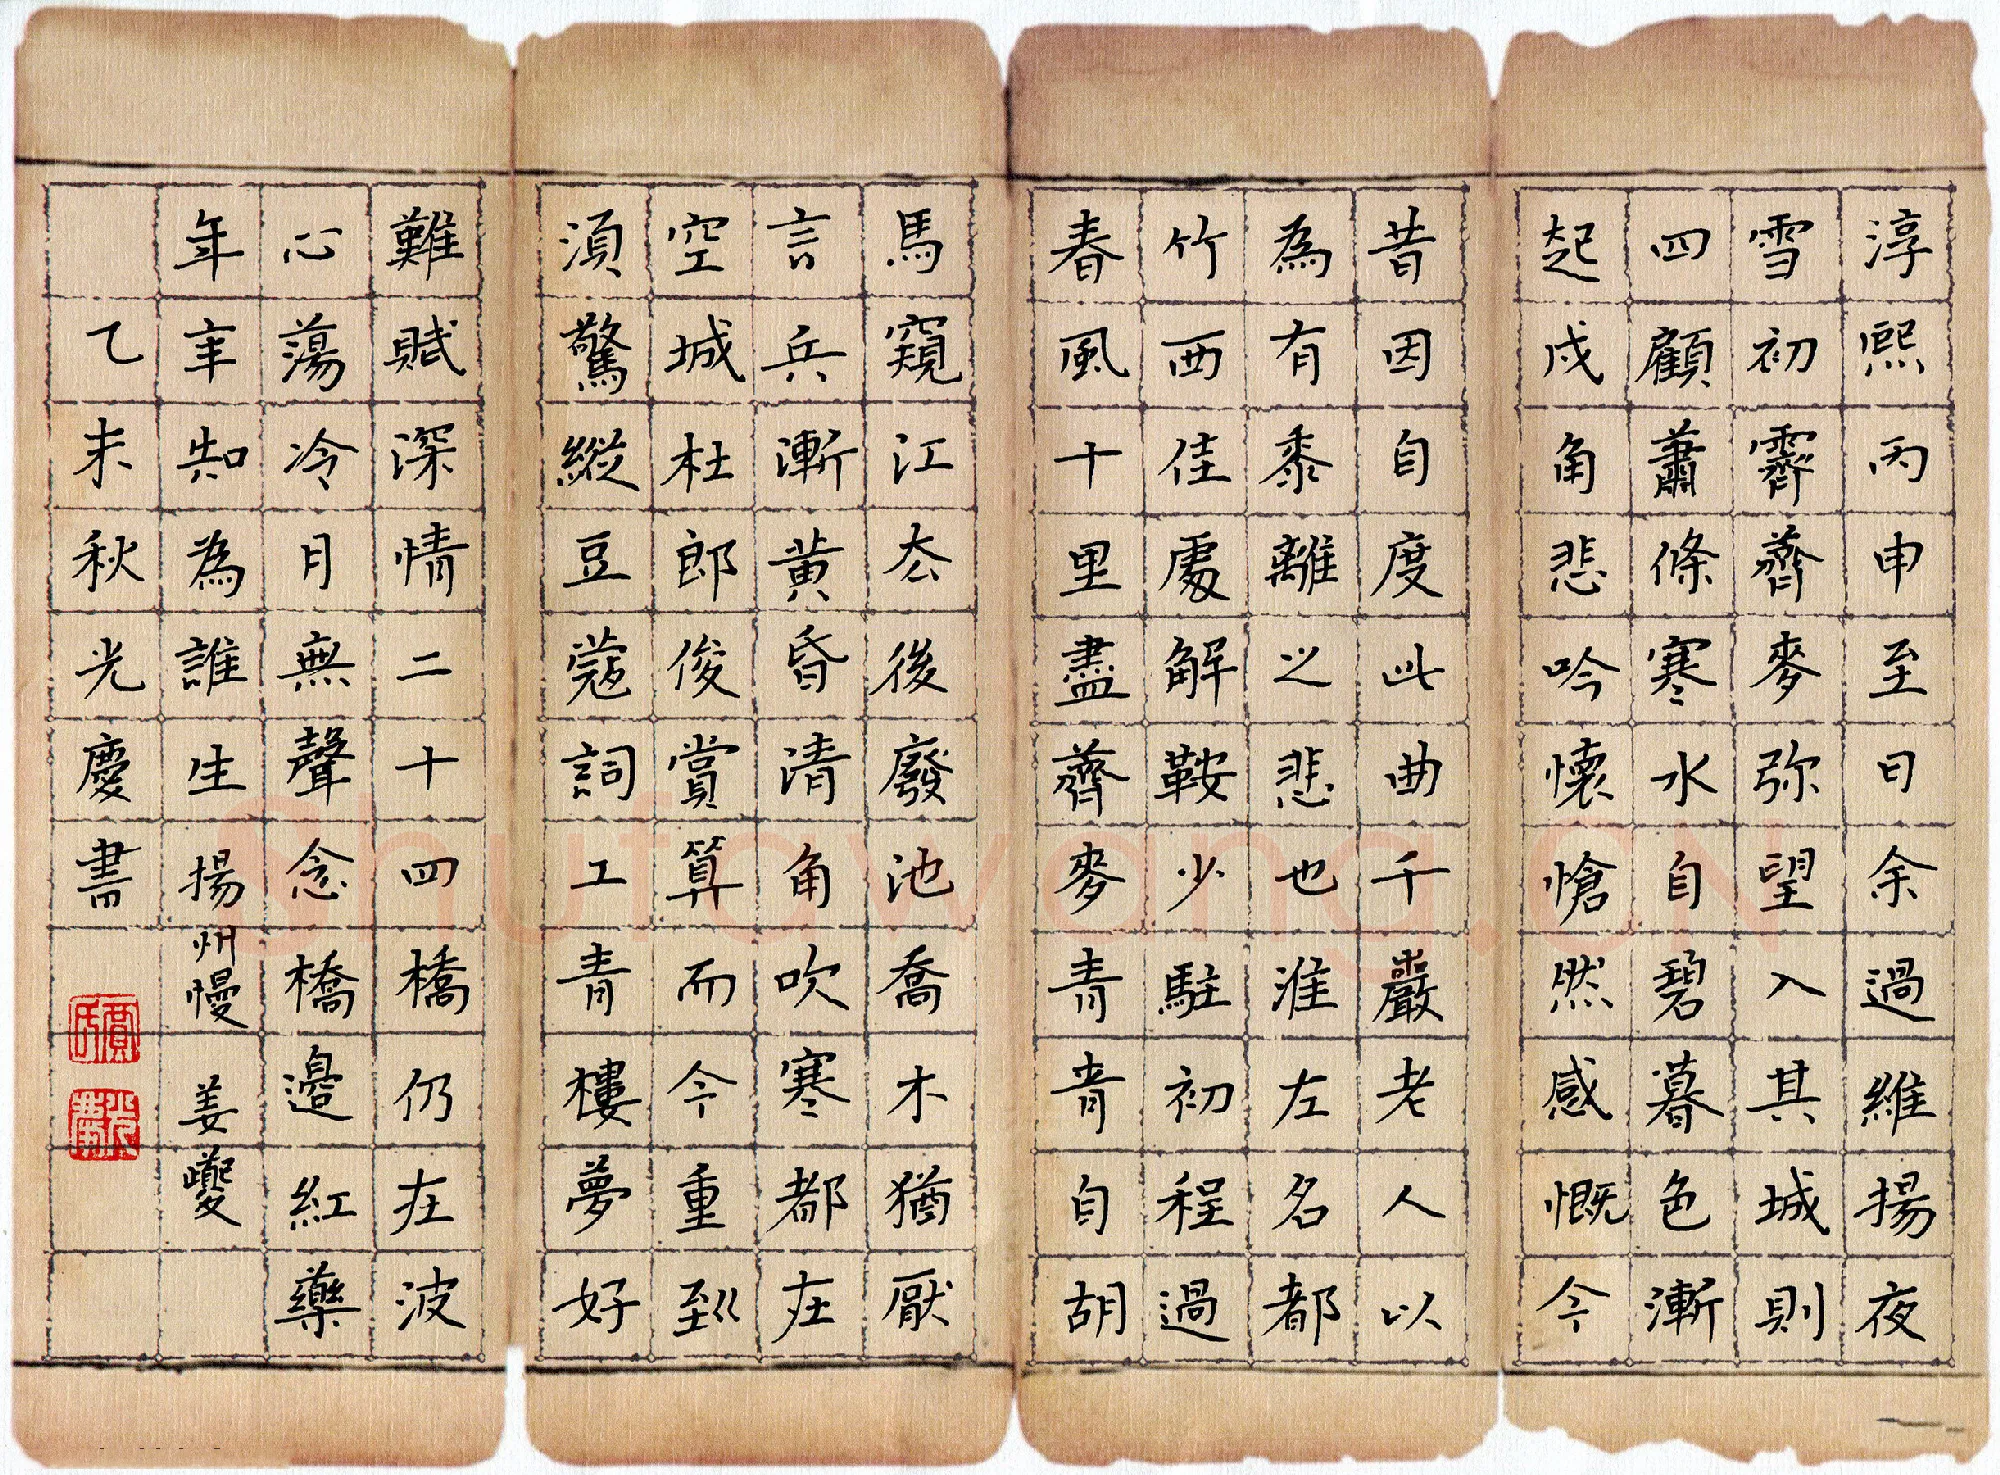 淳熙丙申至日余過維揚夜
雪初霽薺麥弥望入其城則
四顧蕭條寒水自碧暮色漸
起戍角悲吟懷愴然感慨今
昔因自度此曲千巖老人以
為有黍離之悲也淮左名都
竹西佳處解鞍少駐初程過
春風十里盡薺麥青青自胡
馬窺江去後廢池喬木猶厭
言兵漸黃昏清角吹寒都在
空城杜郎俊賞算而今重到
須驚縱豆蔻詞工青樓夢好
難賦深情二十四橋仍在波
心蕩冷月無聲念橋邊紅藥
年年知為誰生 揚州慢 姜夔
乙未秋光慶書
賈氏
光慶
Shufawang.CN